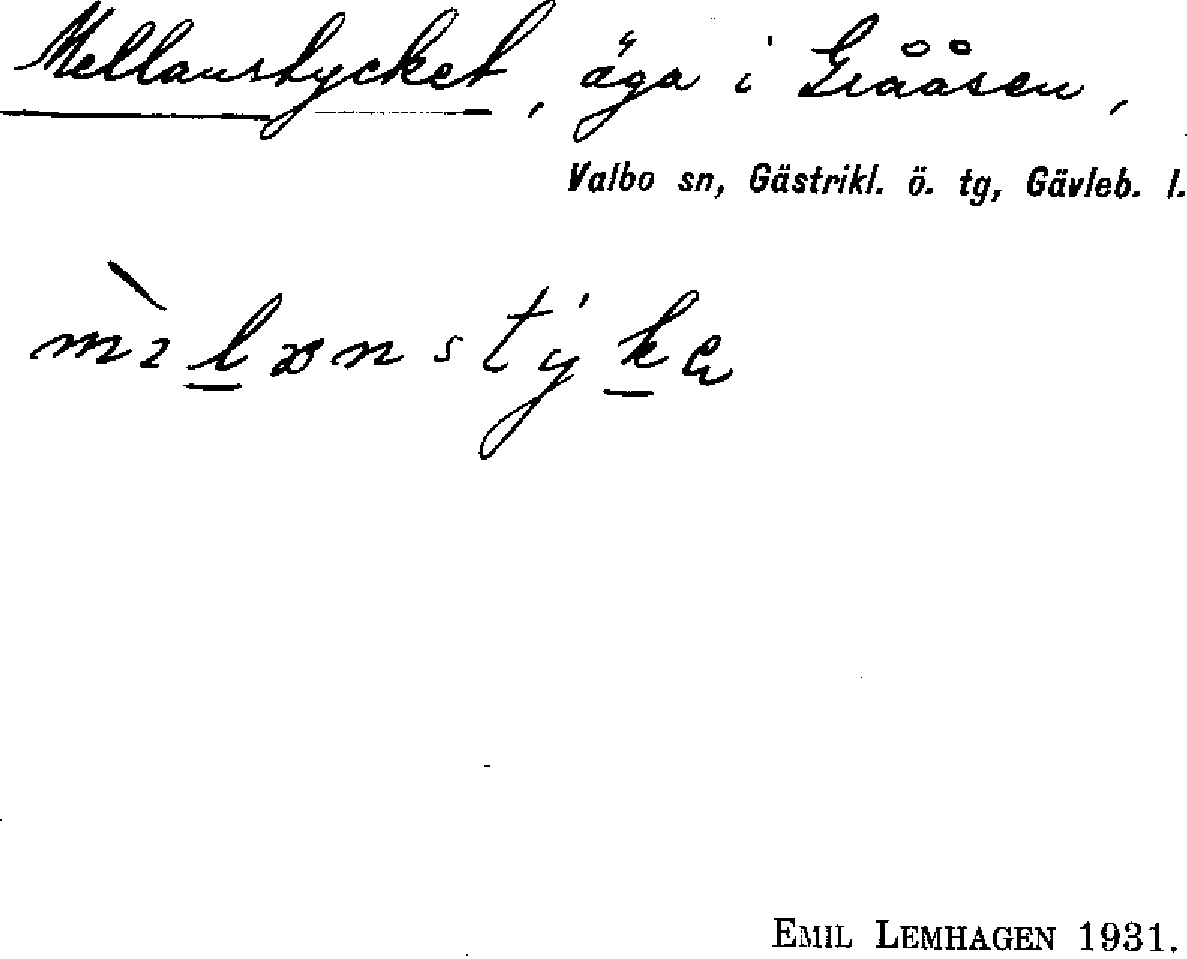 Mellanstycket, äga i Grååsen,
Valbo sn, Gästrikl. ö. tg, Gävleb. l.
EMIL LEMHAGEN 1931.